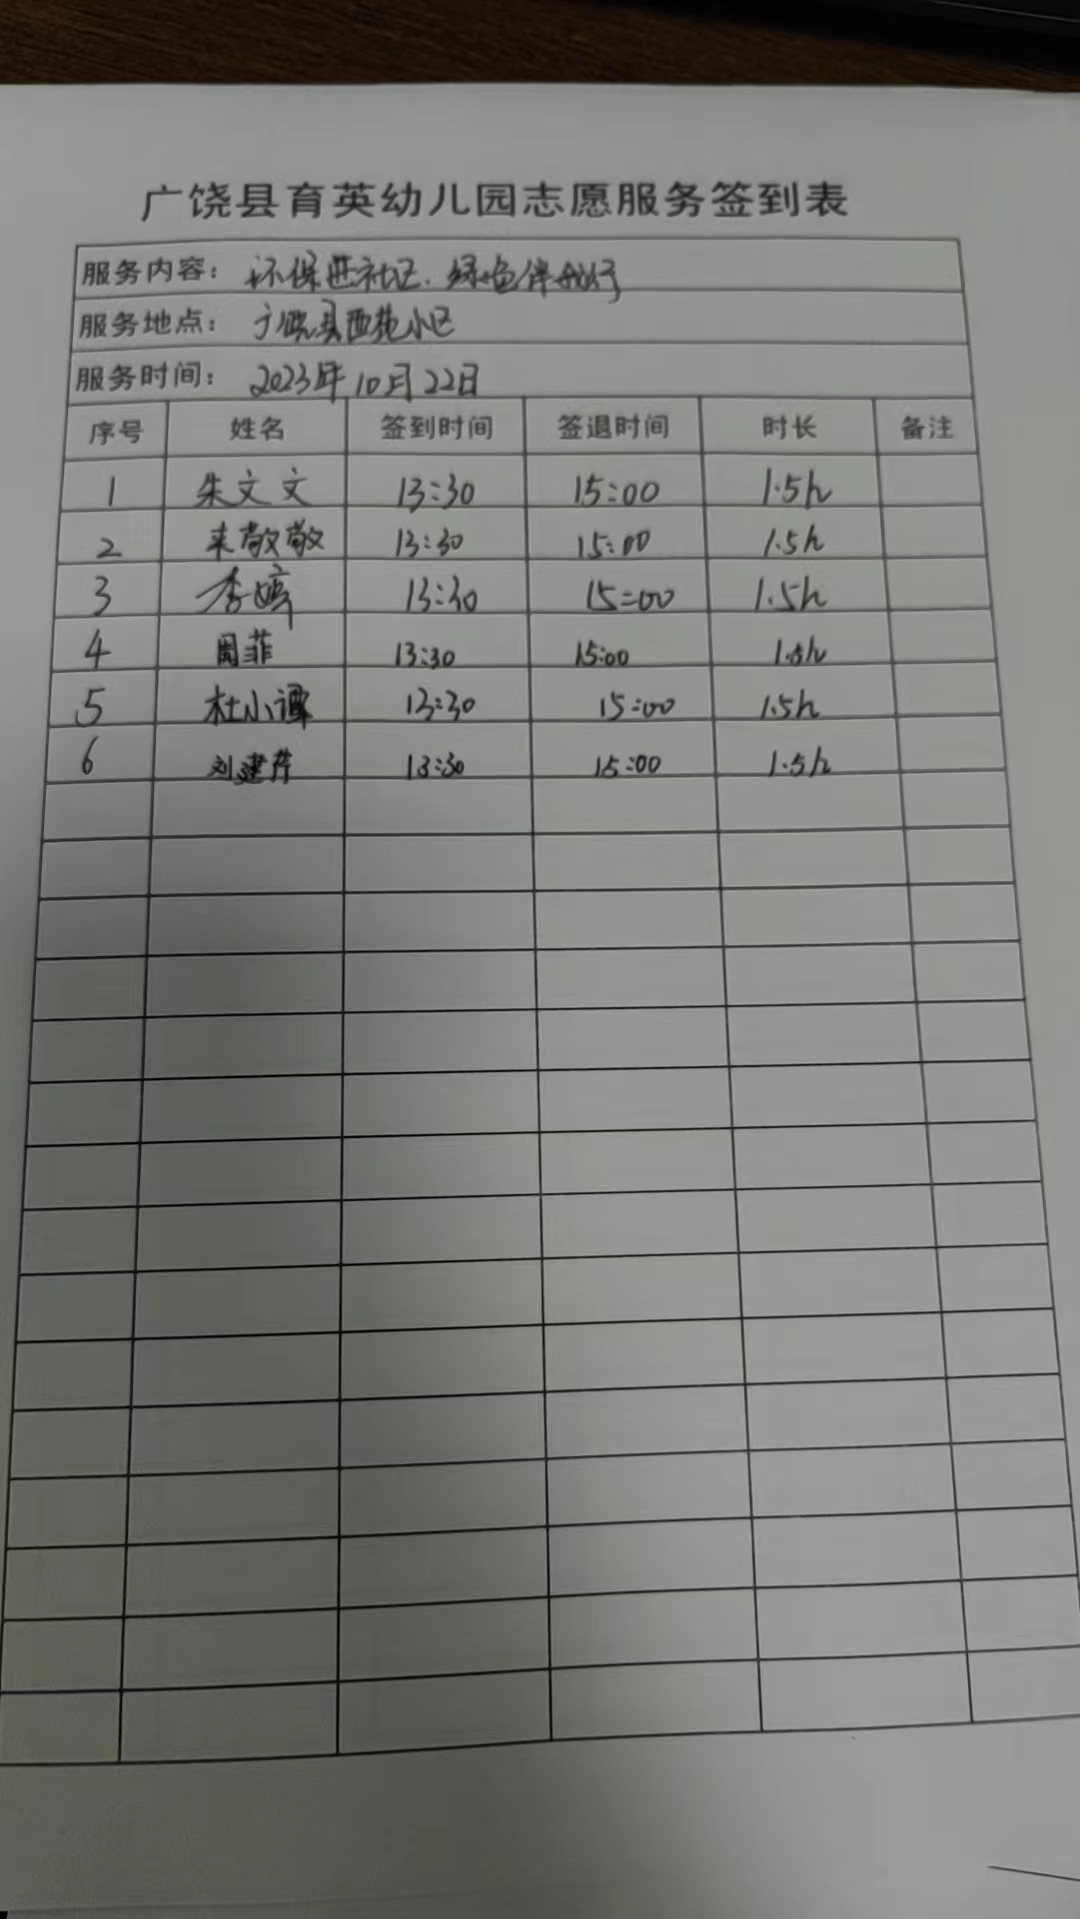 广饶县育英幼儿园志愿服务签到表
服务内容：环保进社区.绿色伴我行
服务地点：广饶县西苑小区
服务时间：2023年10月22日
序号 姓名 签到时间 签退时间 时长 备注
1 朱文文 13:30 15:00 1.5h
2 来敬敬 13:30 15:00 1.5h
3 李婷 13:30 15:00 1.5h
4 周菲 13:30 15:00 1.5h
5 杜小谭 13:30 15:00 1.5h
6 刘建芹 13:30 15:00 1.5h